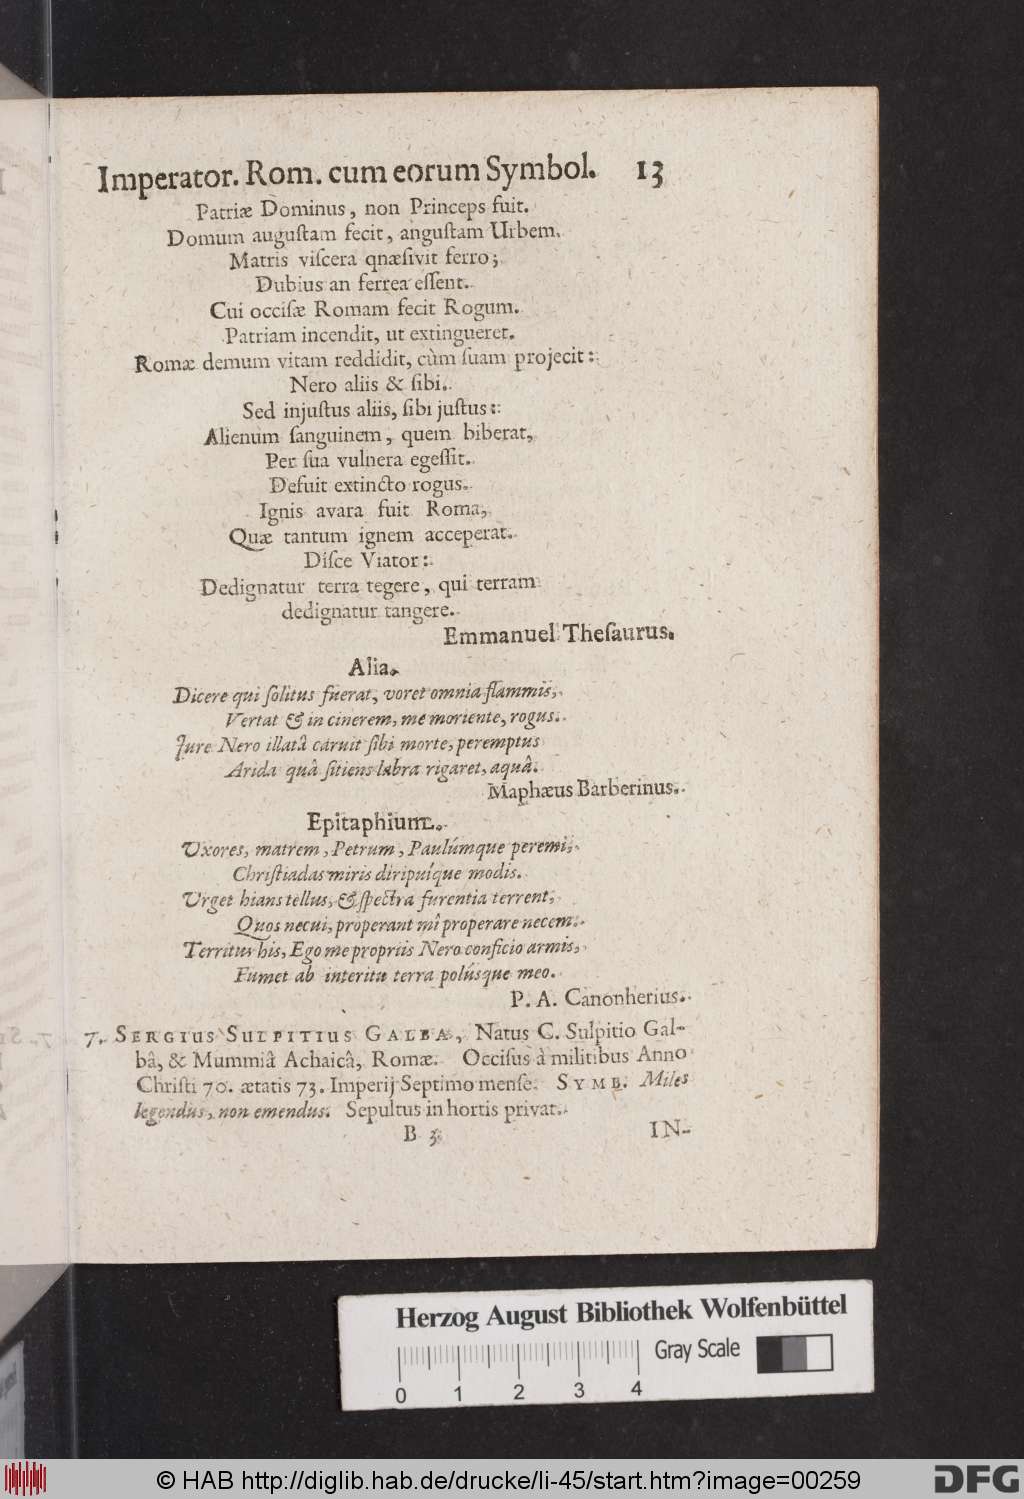 Imperator. Rom. cum eorum Symbol. 13
Patriæ Dominus, non Princeps fuit.
Domum auguſtam fecit, anguſtam Urbem.
Matris viſcera qnæſivit ferro;
Dubius an ferrea eſſent.
Cui occiſæ Romam fecit Rogum.
Patriam incendit, ut extingueret.
Romæ demum vitam reddidit, cùm ſuam projecit:
Nero aliis & ſibi.
Sed injuſtus aliis, ſibi juſtus:
Alienum ſanguinem, quem biberat,
Per ſua vulnera egeſſit.
Defuit extincto rogus.
Ignis avara fuit Roma,
Quæ tantum ignem acceperat.
Diſce Viator:
Dedignatur terra tegere, qui terram
dedignatur tangere.
Emmanuel Theſaurus.
Alia.
Dicere qui ſolitus fuerat, voret omnia flammis,
Vertat & in cinerem, me moriente, rogus.
Jure Nero illatâ caruit ſibi morte, peremptus
Arida quâ ſitiens labra rigaret, aquâ.
Maphæus Barberinus.
Epitaphium.
Uxores, matrem, Petrum, Paulúmque peremi,
Chriſtiadas miris diripuíque modis.
Urget hians tellus, & ſpectra furentia terrent,
Quos necui, properant mî properare necem.
Territus his, Ego me propriis Nero conficio armis,
Fumet ab interitu terra polúsque meo.
P. A. Canonherius.
7. SERGIUS SULPITIUS GALBA, Natus C. Sulpitio Gal-
bâ, & Mummiâ Achaicâ, Romæ. Occiſus à militibus Anno
Chriſti 70. ætatis 73. Imperij Septimo menſe. SYMB. Miles
legendus, non emendus. Sepultus in hortis privat.
B 3 IN-
Herzog August Bibliothek Wolfenbüttel
Gray Scale
0 1 2 3 4
© HAB http://diglib.hab.de/drucke/li-45/start.htm?image=00259
DFG